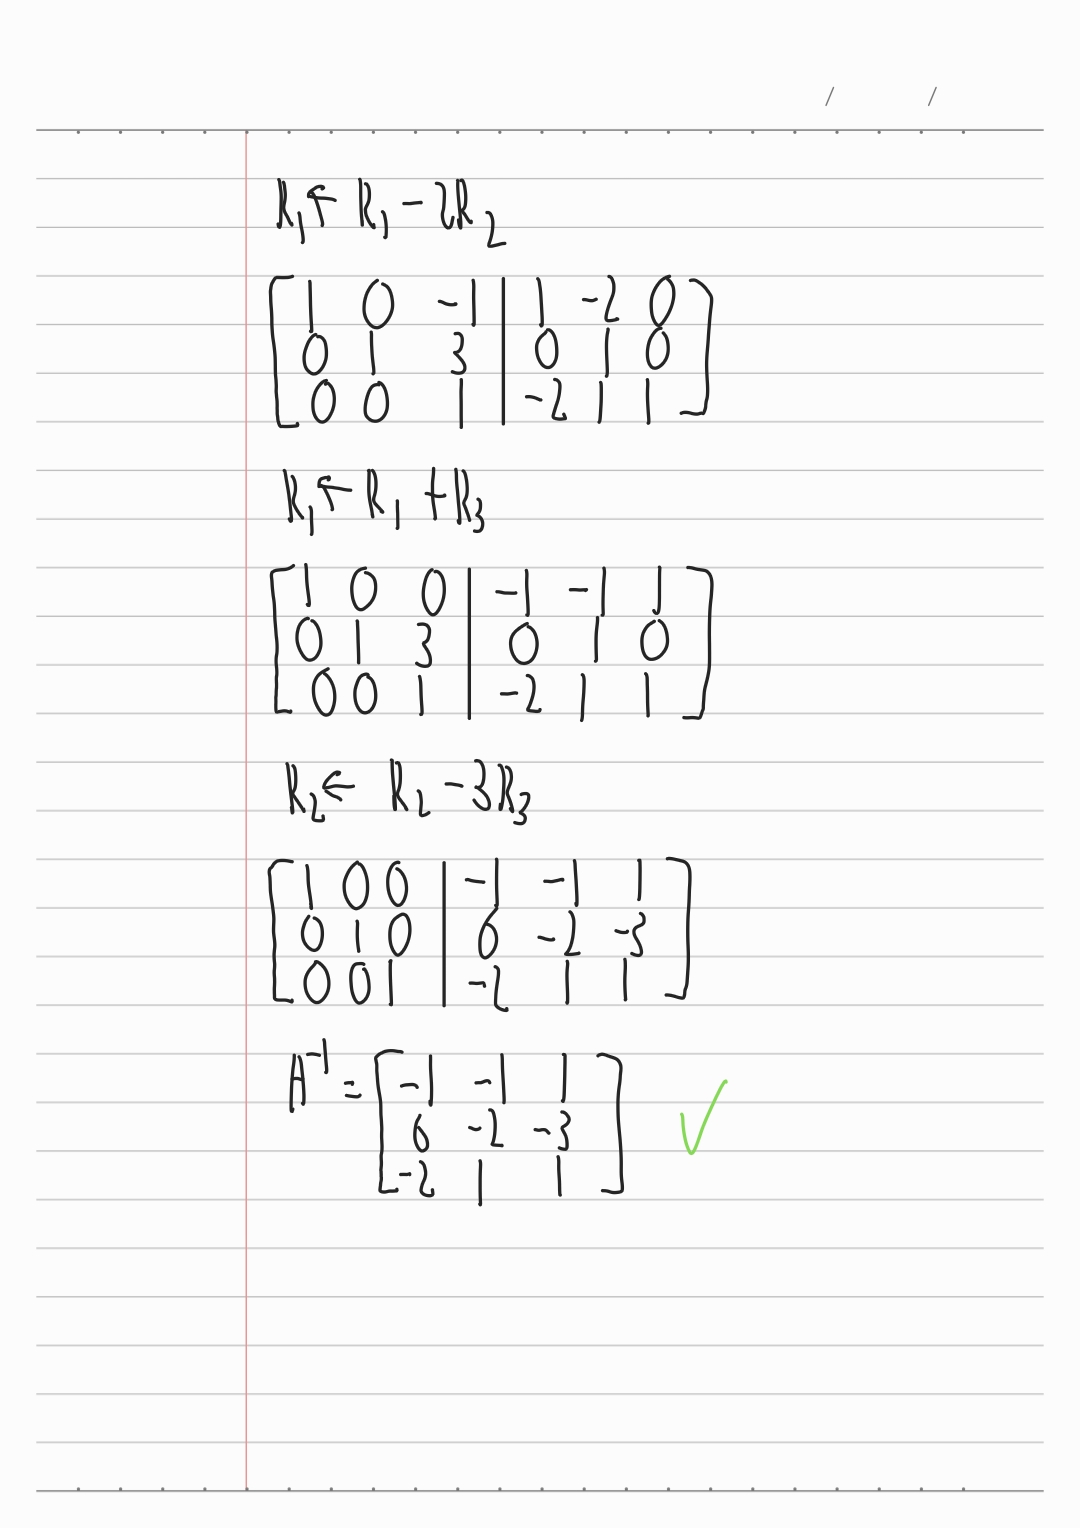 / /
R₁ ← R₁ - 2R₂
[ 1 0 -1 | 1 -2 0 ]
[ 0 1 3 | 0 1 0 ]
[ 0 0 1 | -2 1 1 ]
R₁ ← R₁ + R₃
[ 1 0 0 | -1 -1 1 ]
[ 0 1 3 | 0 1 0 ]
[ 0 0 1 | -2 1 1 ]
R₂ ← R₂ - 3R₃
[ 1 0 0 | -1 -1 1 ]
[ 0 1 0 | 6 -2 -3 ]
[ 0 0 1 | -2 1 1 ]
A⁻¹ = [ -1 -1 1 ]
[ 6 -2 -3 ]
[ -2 1 1 ] ✓